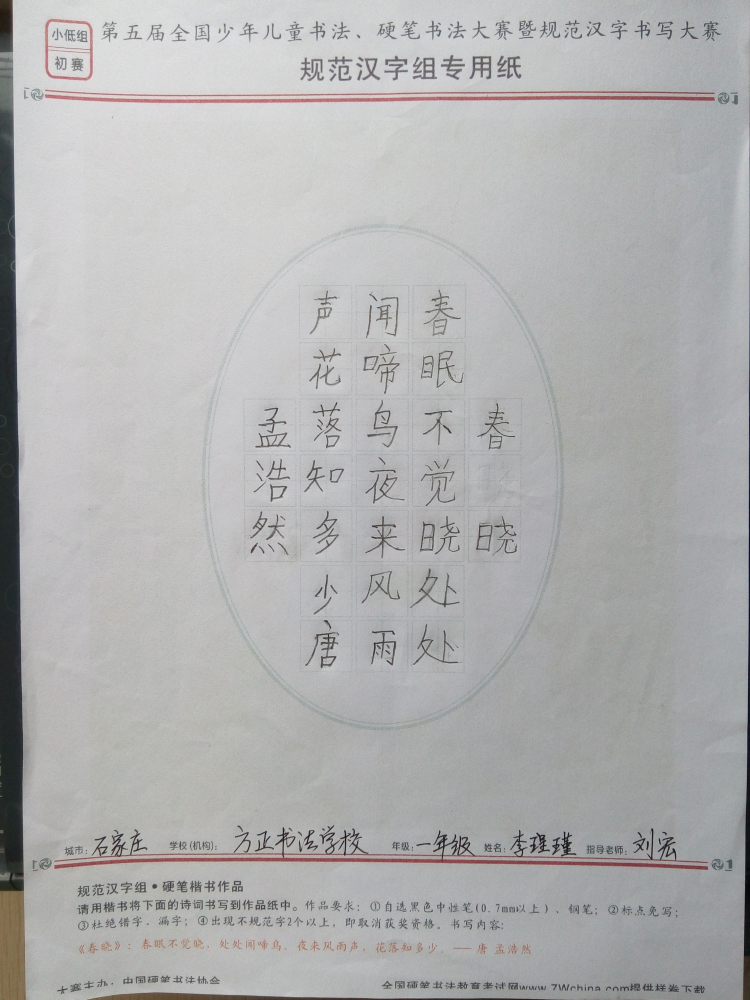 小低组
初赛
第五届全国少年儿童书法、硬笔书法大赛暨规范汉字书写大赛
规范汉字组专用纸
春晓
春眠不觉晓处处
闻啼鸟夜来风雨
声花落知多少唐
孟浩然
城市: 石家庄 学校(机构): 方正书法学校 年级: 一年级 姓名: 李珵瑾 指导老师: 刘宏
规范汉字组•硬笔楷书作品
请用楷书将下面的诗词书写到作品纸中。作品要求: ①自选黑色中性笔(0.7mm以上)、钢笔; ②标点免写;
③杜绝错字、漏字; ④出现不规范字2个以上, 即取消获奖资格。书写内容:
《春晓》: 春眠不觉晓, 处处闻啼鸟。夜来风雨声, 花落知多少。—— 唐 孟浩然
大赛主办: 中国硬笔书法协会 全国硬笔书法教育考试网www.7Wchina.com提供样卷下载